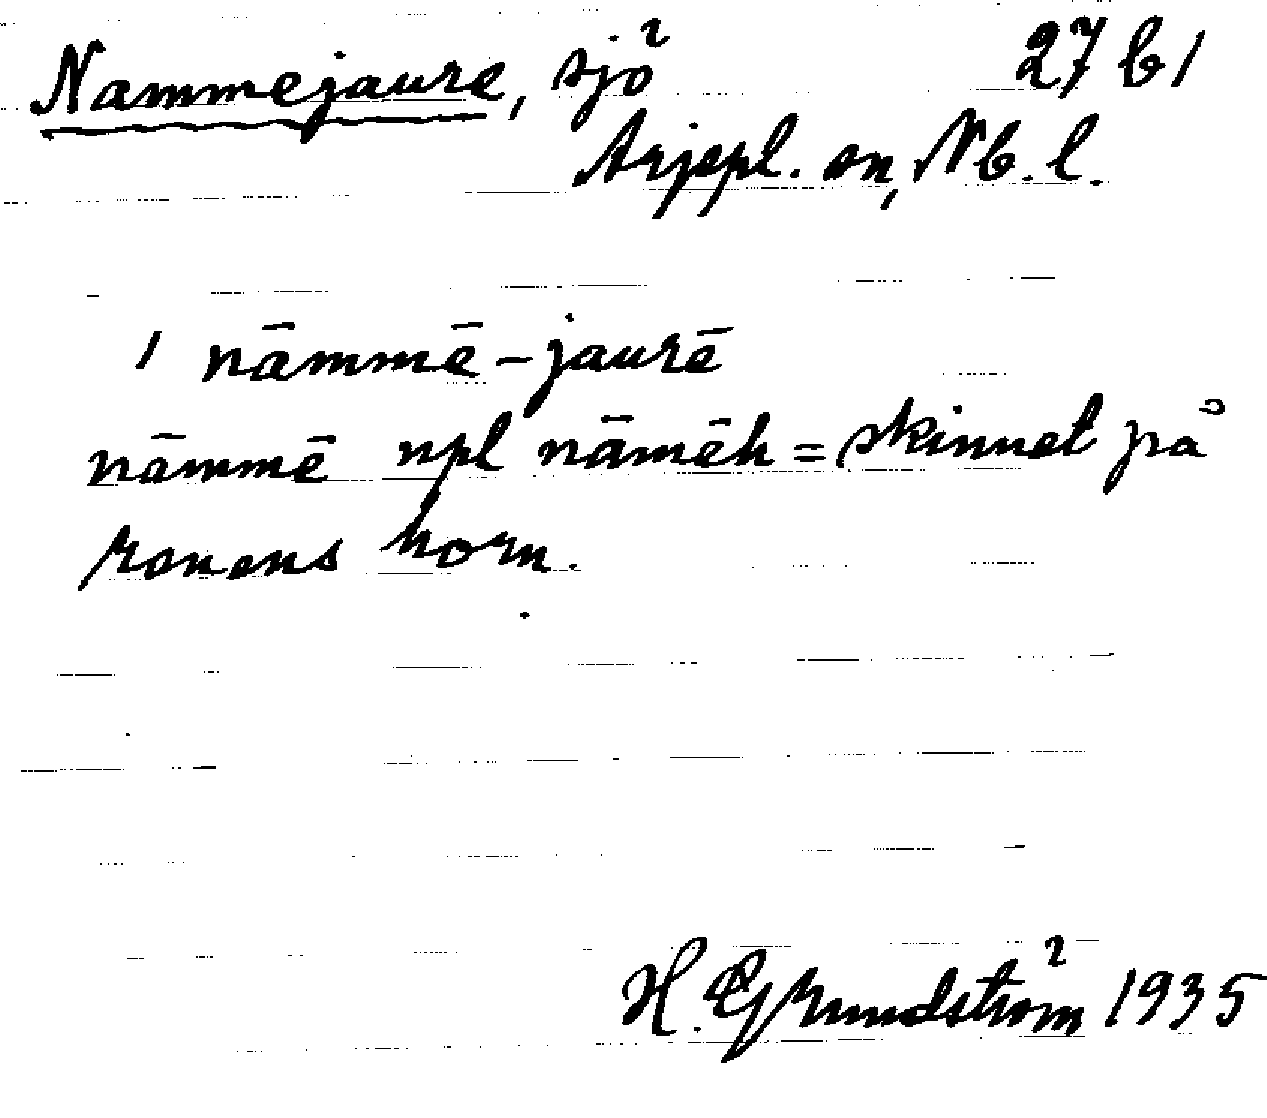 Nammejaure, sjö 27 b 1
Arjepl. sn, Nb. l.
1 nāmmē-jaurē
nāmmē npl nāmēh = skinnet på
renens horn.
H. Grundström 1935